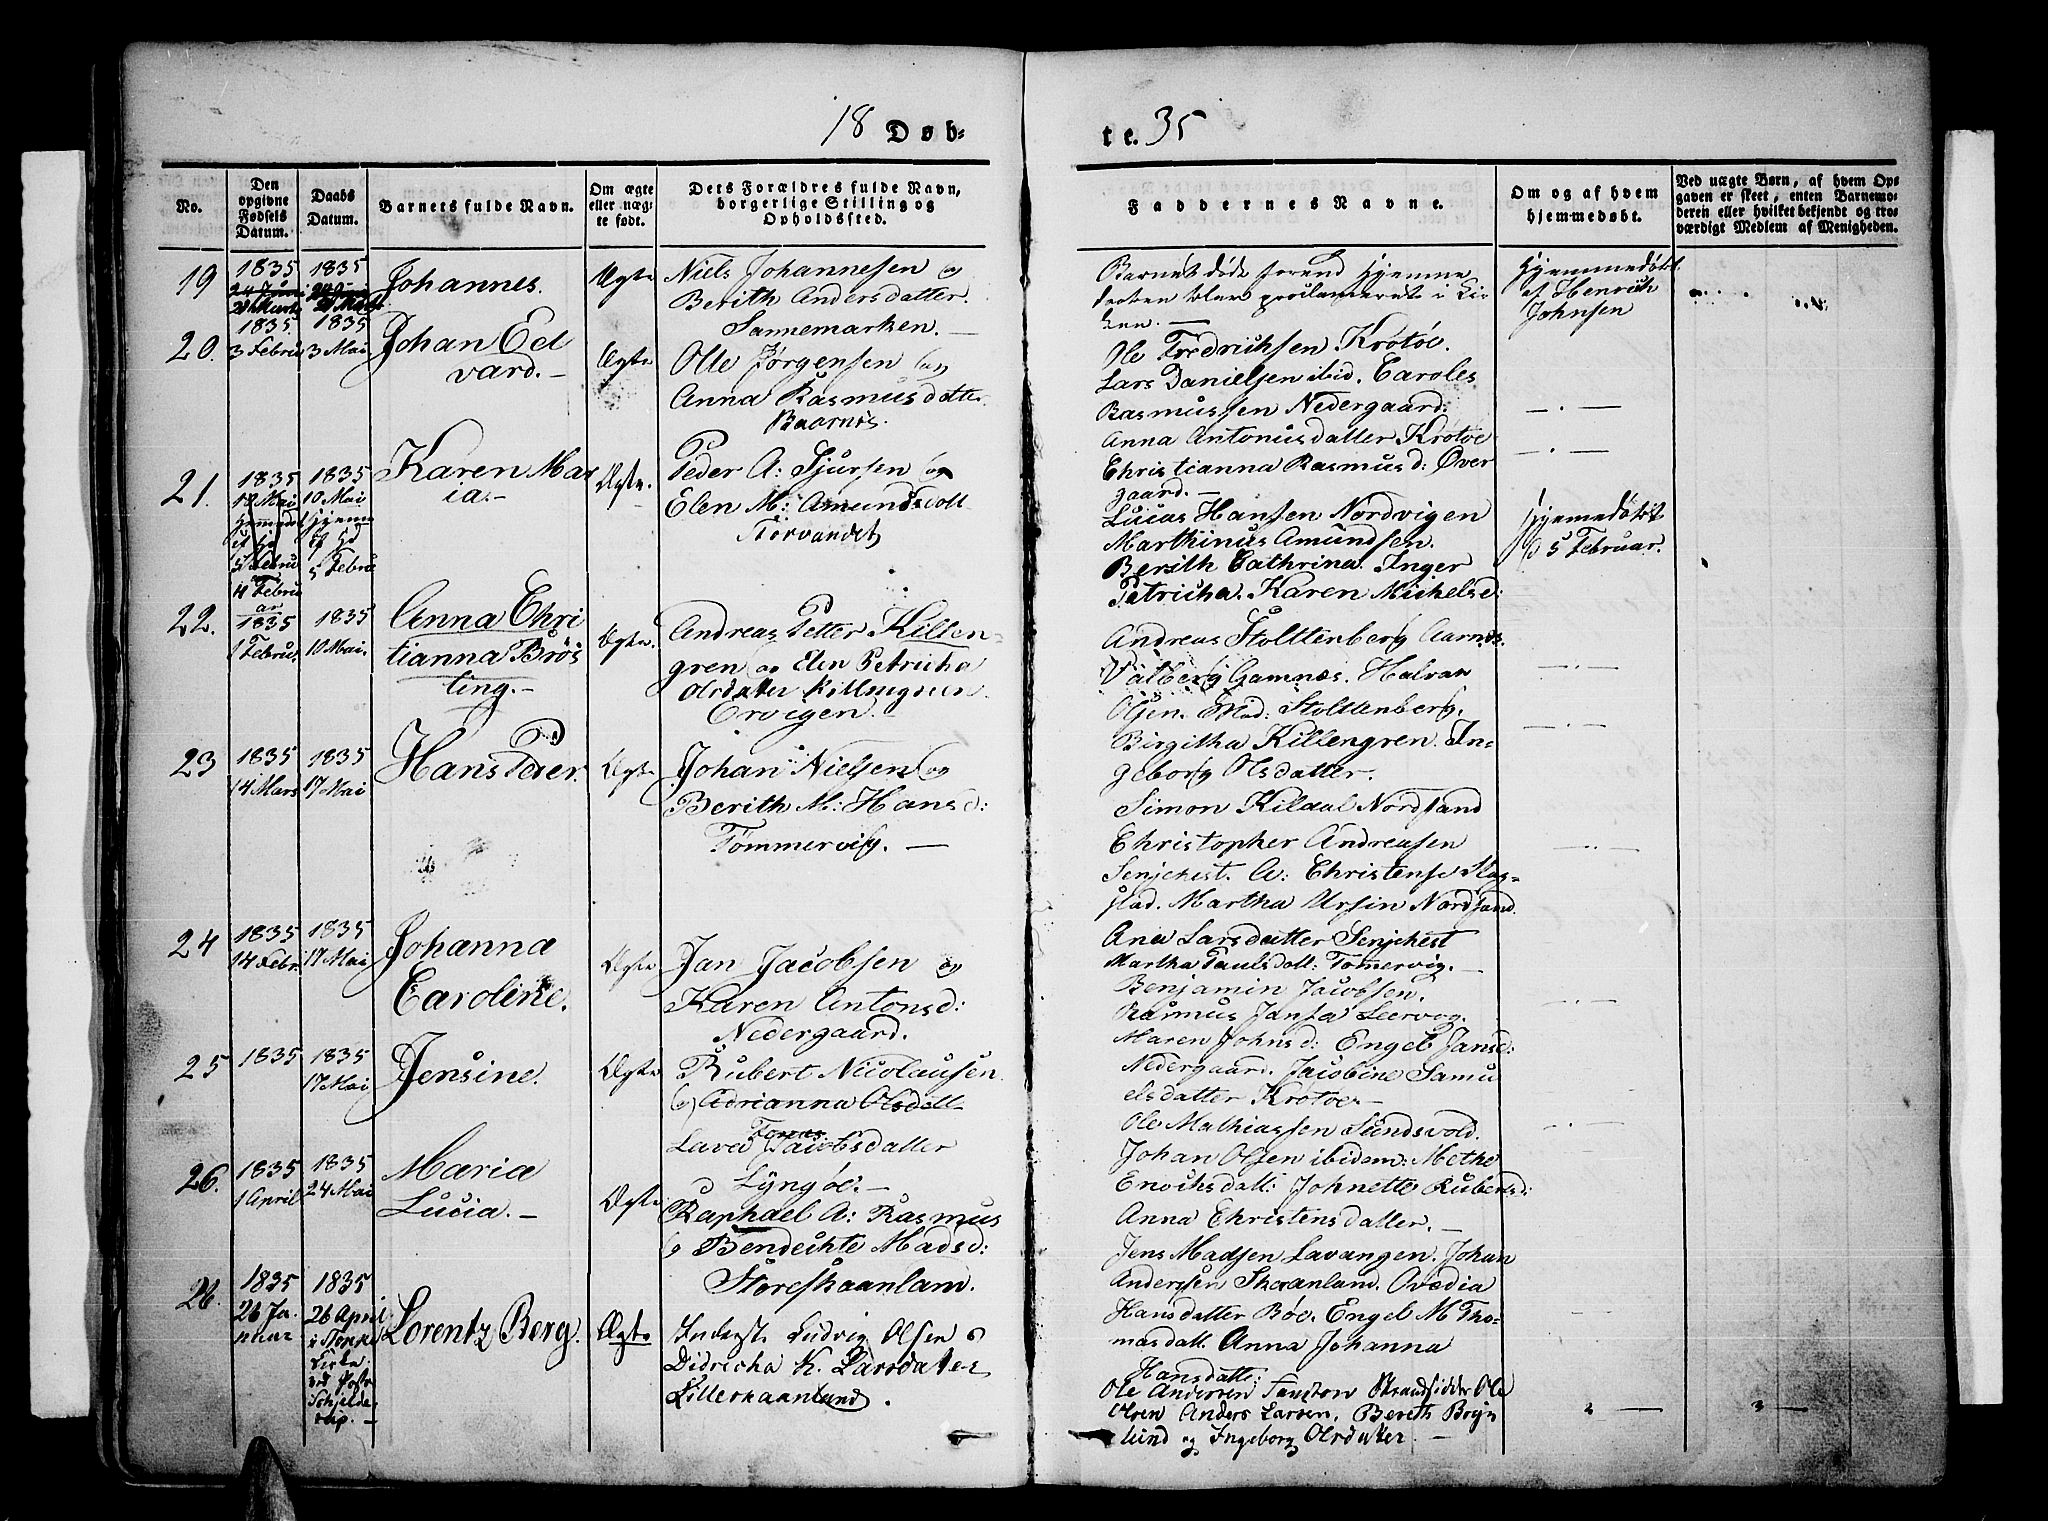 18 Døb-
te. 35
No.
Den opgivne Fødsels Datum.
Daabs Datum.
Barnets fulde Navn.
Om ægte eller uægte født.
Dets Forældres fulde Navn, borgerlige Stilling og Opholdssted.
Faddernes Navne.
Om og af hvem hjemmedøbt.
Ved uægte Børn, af hvem Opgaven er skeet, enten Barnemoderen eller hvilket bekjendt og troværdigt Medlem af Menigheden.
19
1835
1835
Johannes.
Ægte
Niels Johannesen og
Berith Andersdatter.
Sannemarken. —
Barnet døde forend Hjemme
daaben blev proclameret i Kir
ken. —
Hjemmedøbt
af Henrich
Johnsen
20.
1835.
3 Febru
1835
3 Mai
Johan Ed
vard. —
Ægte
Olle Jørgensen og
Anna Rasmusdatter
Ole Fredrichsen Krøtøe.
Lars Danielsen ibid. Caroles
Rasmussen Nedergaard.
Anna Antonusdatter Krøtøe
Christianna Rasmusd: Øver
gaard. —
— . —
21.
1835
1835
10 Mai
5 Febru
4 Febru
ar
5 Febru
Karen Mar
ia. —
Ægte.
Peder A: Sjursen og
Elen M: Amundsdatt
Storvandet
Lucas Hansen Nordvigen
Marthinus Amundsen.
Berith Cathrina. Inger
Petricha. Karen Michelsd:
Hjemmedøbt
d 5 Februar.
22.
1835
1 Febru.
1835
10 Mai.
Anna Chri
tianna Brøs
ting. —
Ægte.
Andreas Petter Killen-
gren og Elen Petricha
Olsdatter Killengreen
Ervigen. —
Andreas Stolttenberg Aarnes.
Valberg Gamnæs. Halvar
Olsen. Mad: Stolttenberg.
Birgitha Killengren. In-
geborg Olsdatter.
— . —
23
1835
14 Mars
1835
17 Mai
Hans Peder.
Ægte
Johan Nielsen og
Berith M: Hansd:
Tømmervig. —
Simon Kildal Nordsand
Christopher Andreasen
Senjehest. A: Christense Stag-
stad. Martha Ursin Nordsand.
Ana Larsdatter Senjehest
Martha Paulsdatt: Tømervig. —
— . —
24
1835
14 Febr.
1835
17 Mai
Johanna
Caroline.
Ægte
Jan Jacobsen og
Karen Antonsd:
Nedergaard.
Benjamin Jacobsen.
Rasmus Jansa Leervog.
Maren Johnsd: Engel Jansd:
Nedergaard. Jacobine Samu
elsdatter Krøtøe —
— . —
25
1835
1835
17 Mai
Jensine.
Ægte
Rubert Nicolausen.
og Adrianna Olsdatt
Ole Mathiassen Sundsvold.
Johan Olsen ibidem: Methe
Enochsdatt: Johnette Rubertsd:
Anna Christensdatter. —
— . —
Jacobsdatter
Lyngøe. —
26.
1835
1 April
1835
24 Mai
Maria
Lucia. —
Ægte
Raphael A: Rasmus
og Bendichte Madsd:
Storeskaanlam.
Jens Madsen Lavangen. Johan
Anderssen Skaanland. Ovedia
Hansdatter Bøe. Engel M Tho-
masdatt. Anna Johanna
Hansdatt:
26.
1835
26 Ja-
nuar
1835
26 April
Lorentz Berg.
Ægte
Inderst. Ludvig Olsen o
Didricha K. Larsdatter
Lilleskaanlund.
Ole Andersen Strandsidder Ole
Olsen Anders Larsen. Bereth Bryn
lund og Ingeborg Olsdatter. —